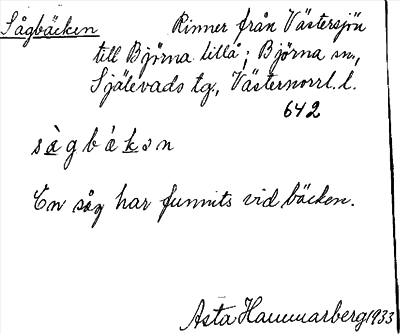 Sågbäcken Rinner från Västersjön
till Björna lillå; Björna sn,
Själevads tg., Västernorrl. l.
642
sàgbákən
En såg har funnits vid bäcken.
Asta Hammarberg 1933